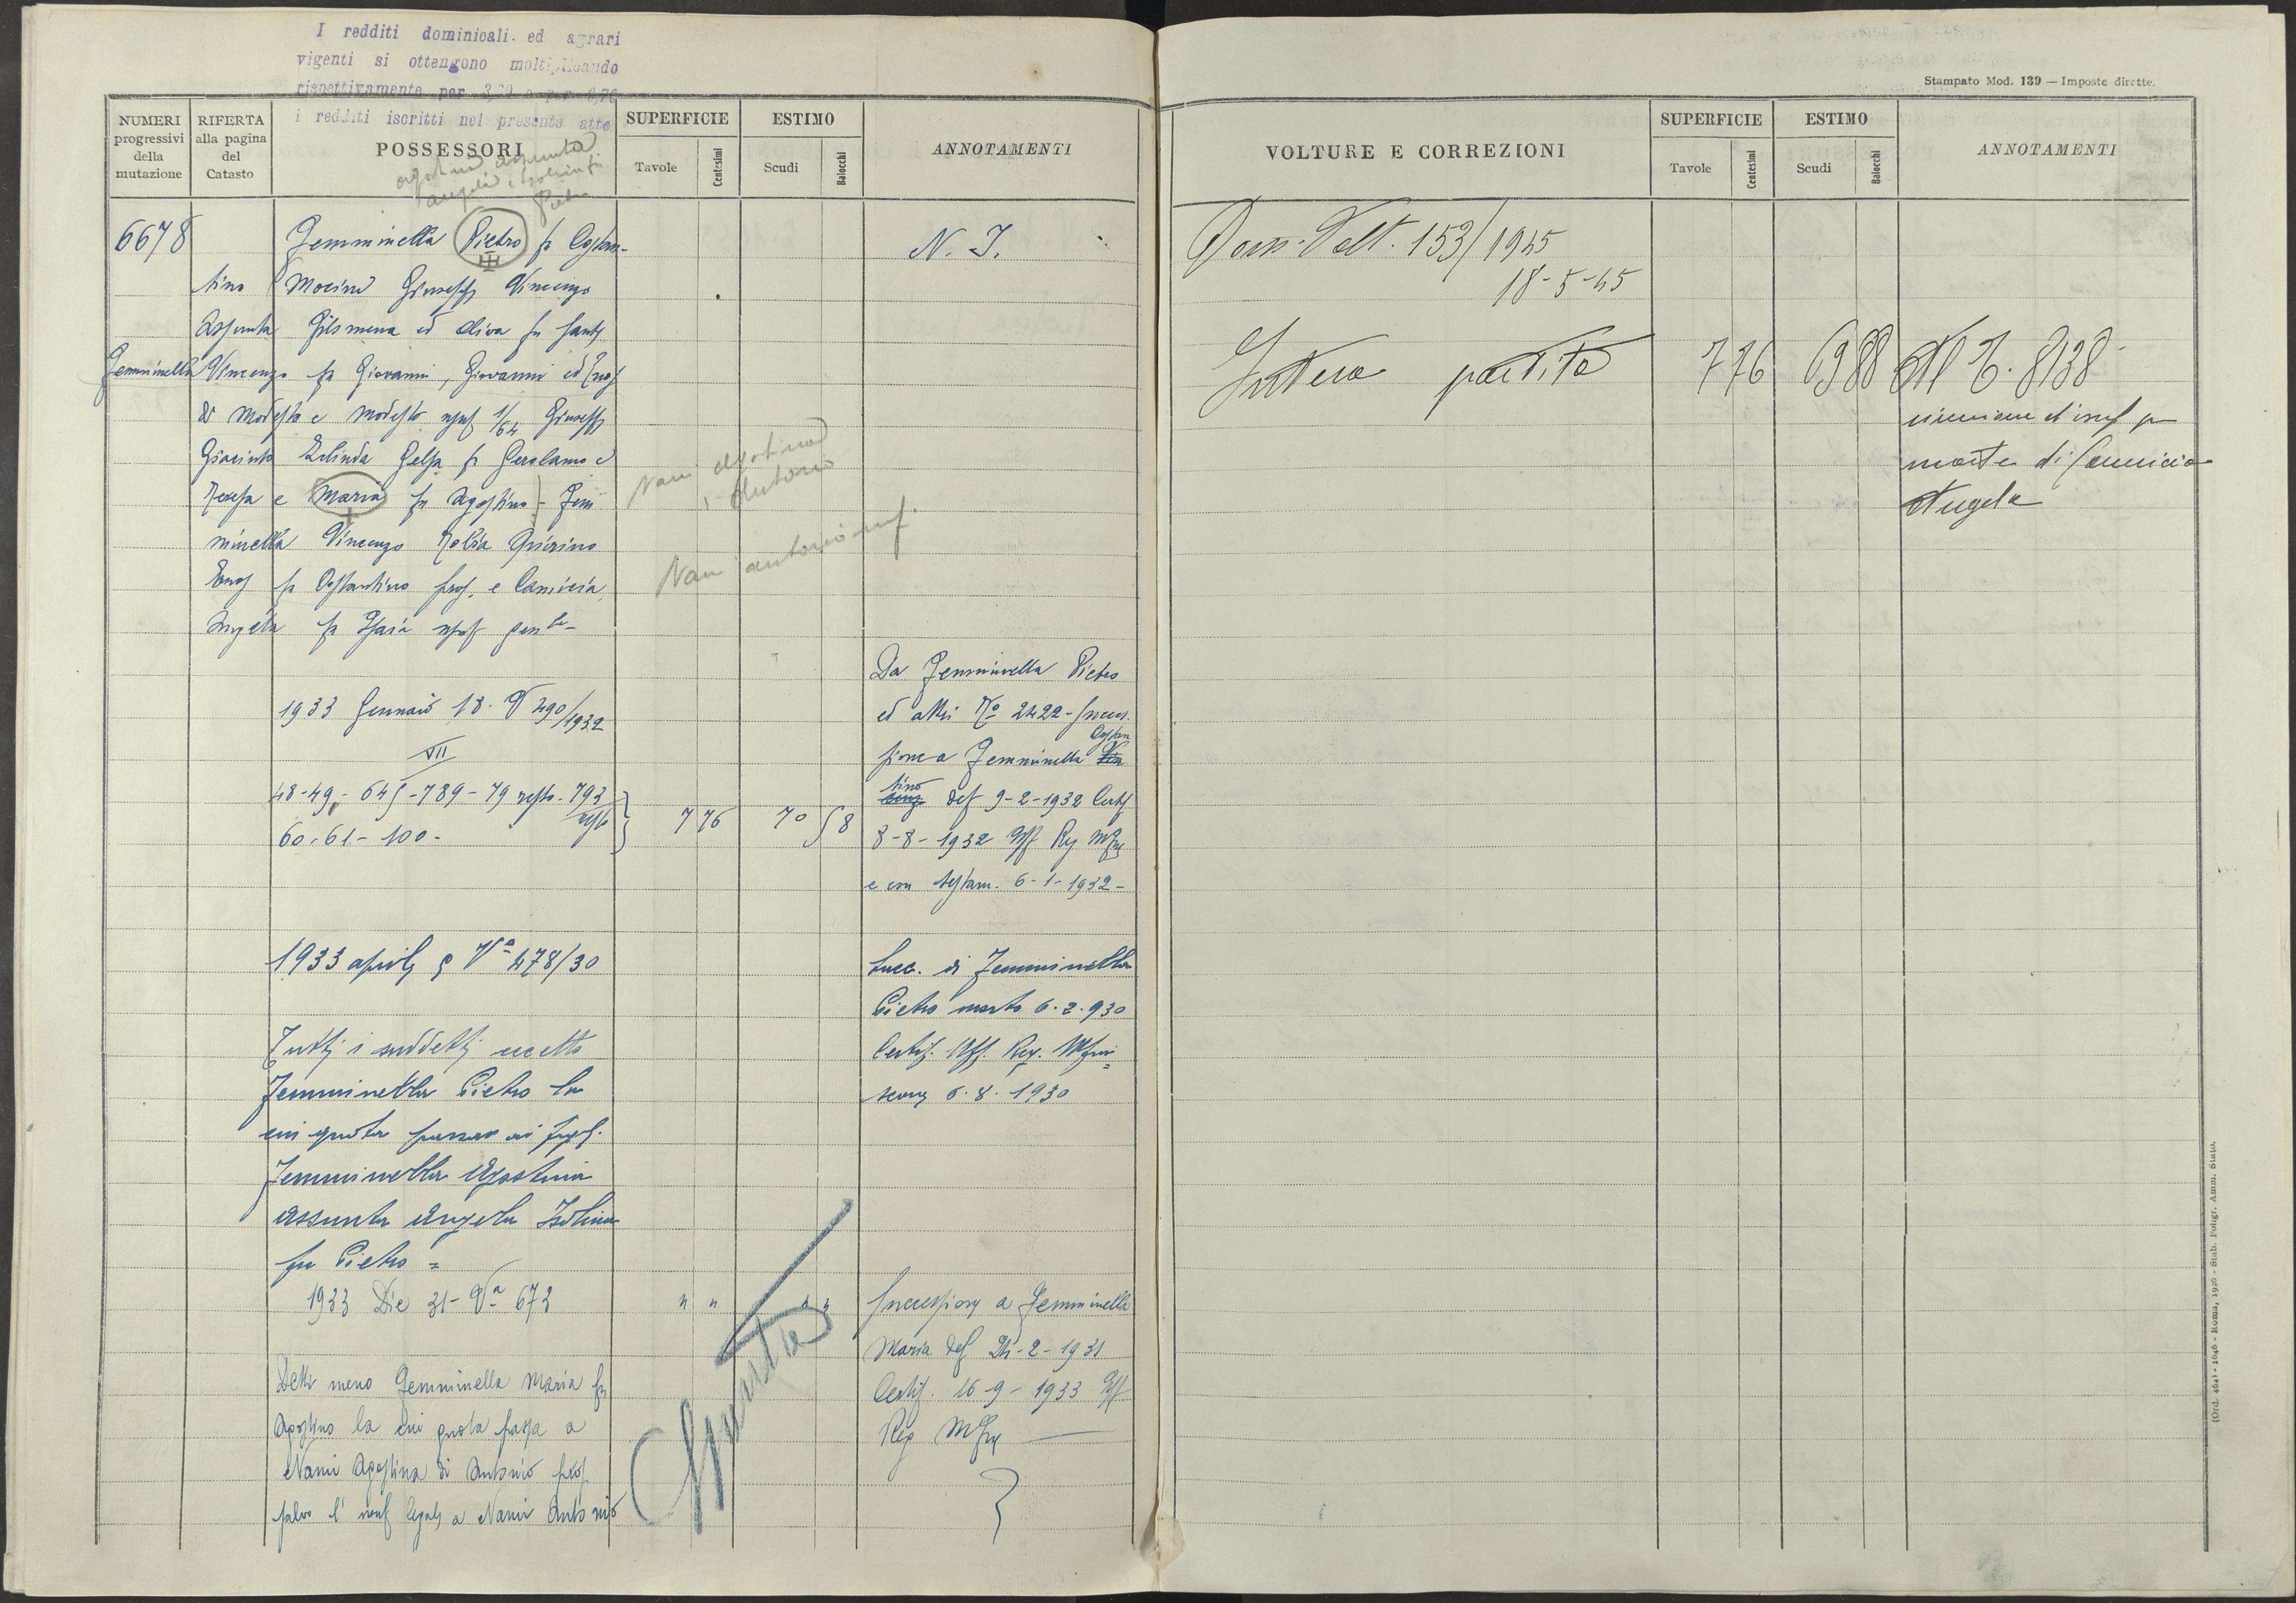 I redditi dominicali ed agrari
vigenti si ottengono moltiplicando
rispettivamente per
i redditi iscritti nel presente atto
Stampato Mod. 139 — Imposte dirette.
NUMERI progressivi della mutazione
RIFERTA alla pagina del Catasto
POSSESSORI
SUPERFICIE
Tavole
Centesimi
ESTIMO
Scudi
Baiocchi
ANNOTAMENTI
VOLTURE E CORREZIONI
SUPERFICIE
Tavole
Centesimi
ESTIMO
Scudi
Baiocchi
ANNOTAMENTI
agostina assunta
angela e Isolina fu
Pietro
6678
Jemminella Pietro fu Costan-
tino Giuseppe Vincenzo
Assunta Filomena ed Oliva fu
Jemminella Vincenzo fu Giovanni, Giovanni ed
di Modesto e Modesto usuf 1/64 Giuseppe
Giacinto Erlinda Gelsa fu Gerolamo e
Teresa e Maria fu Agostino - Jem
minella Vincenzo Quirino
fu Costantino prop. e Camicia
Angela fu Isaia usuf
N. I.
Nani Agostina
Antonio
Nani antonio usuf.
1933 Gennaio 18. V 490/1932
VII
48-49- -789-79 resto. 793
resto
60-61-100-
7 76
70 8
Da Jemminella Pietro
ed altri No 2422-Succes.
sione a Jemminella Costan
tino def 9-2-1932 Certif
8-8-1932 Uff Reg
e con testam. 6-1-1932-
1933 aprile 9 Va 478/30
Tutti i suddetti eccetto
Jemminella Pietro la
cui quota passa ai figli.
Jemminella Agostina
Assunta Angela Isolina
fu Pietro =
Succ. di Jemminella
Pietro morto 6.2.930
Certif. Uff. Reg.
6.8.1930
1933 Dic 31- Va 673
" "
" "
Detti meno Jemminella Maria fu
Agostino la cui quota passa a
Nanni Agostina di Antonio prop
salvo l' usuf legale a Nanni Antonio
Successione a Jemminella
Maria def 24-2-1931
Certif. 16-9-1933 Uff
Reg
Dom. Volt. 153/1945
18-5-45
Intera partita
7 76
69 88
Al P. 8138
riunione di usuf per
morte di Camicia
Angela
(Ord. 464) - 1646 - Roma, 1926 - Stab. Poligr. Amm. Stato.